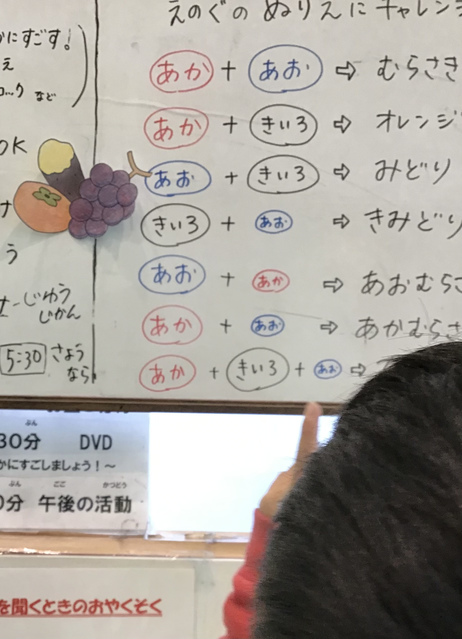 えのぐの ぬりえに チャレンジ
あか + あお ⇨ むらさき
あか + きいろ ⇨ オレンジ
あお + きいろ ⇨ みどり
きいろ + あお ⇨ きみどり
あお + あか ⇨ あおむらさ
あか + あお ⇨ あかむらさ
あか + きいろ + あお ⇨
かにすごす!
え
ロック など
OK
う
じゆう
じかん
5:30 さよう
なら
30分 DVD
かにすごしましょう!～
0分 午後の活動
ぷん ごご かつどう
を聞くときのおやくそく